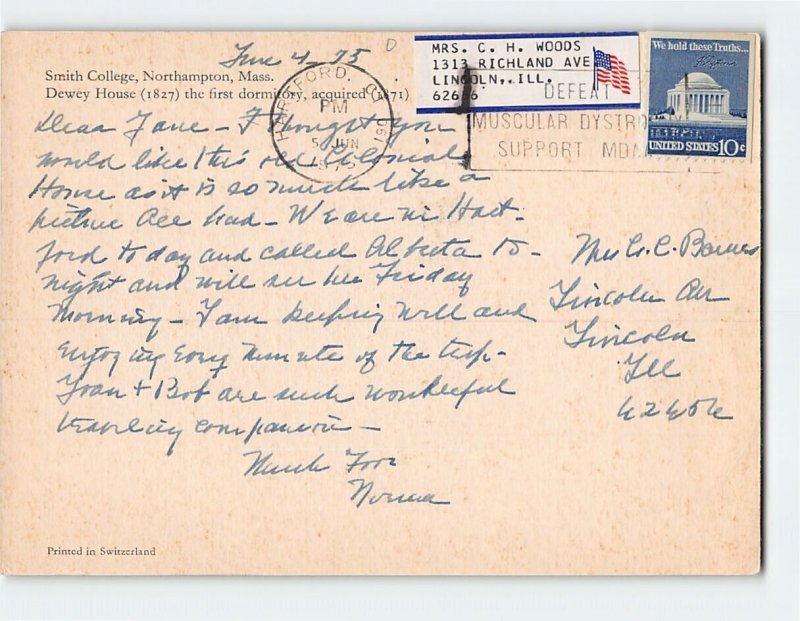 June 4 - 75
Smith College, Northampton, Mass.
Dewey House (1827) the first dormitory, acquired (1871)
MRS. C. H. WOODS
1313 RICHLAND AVE
LINCOLN,, ILL.
62656
We hold these Truths...
UNITED STATES 10c
HARTFORD, CT
PM
5 JUN
1975
DEFEAT
MUSCULAR DYSTRO
SUPPORT MDAA
Dear Jane - I thought you
would like this old Colonial
House as it is so much like a
picture Ace had - We are in Hart-
ford to day and called Alberta to-
night and will see her Friday
Morning - I am keeping well and
enjoying every minute of the trip -
Joan + Bob are such wonderful
traveling companion -
Much Love
Norma
Mrs C. Barnes
Lincoln Ave
Lincoln
Ill
62656
Printed in Switzerland